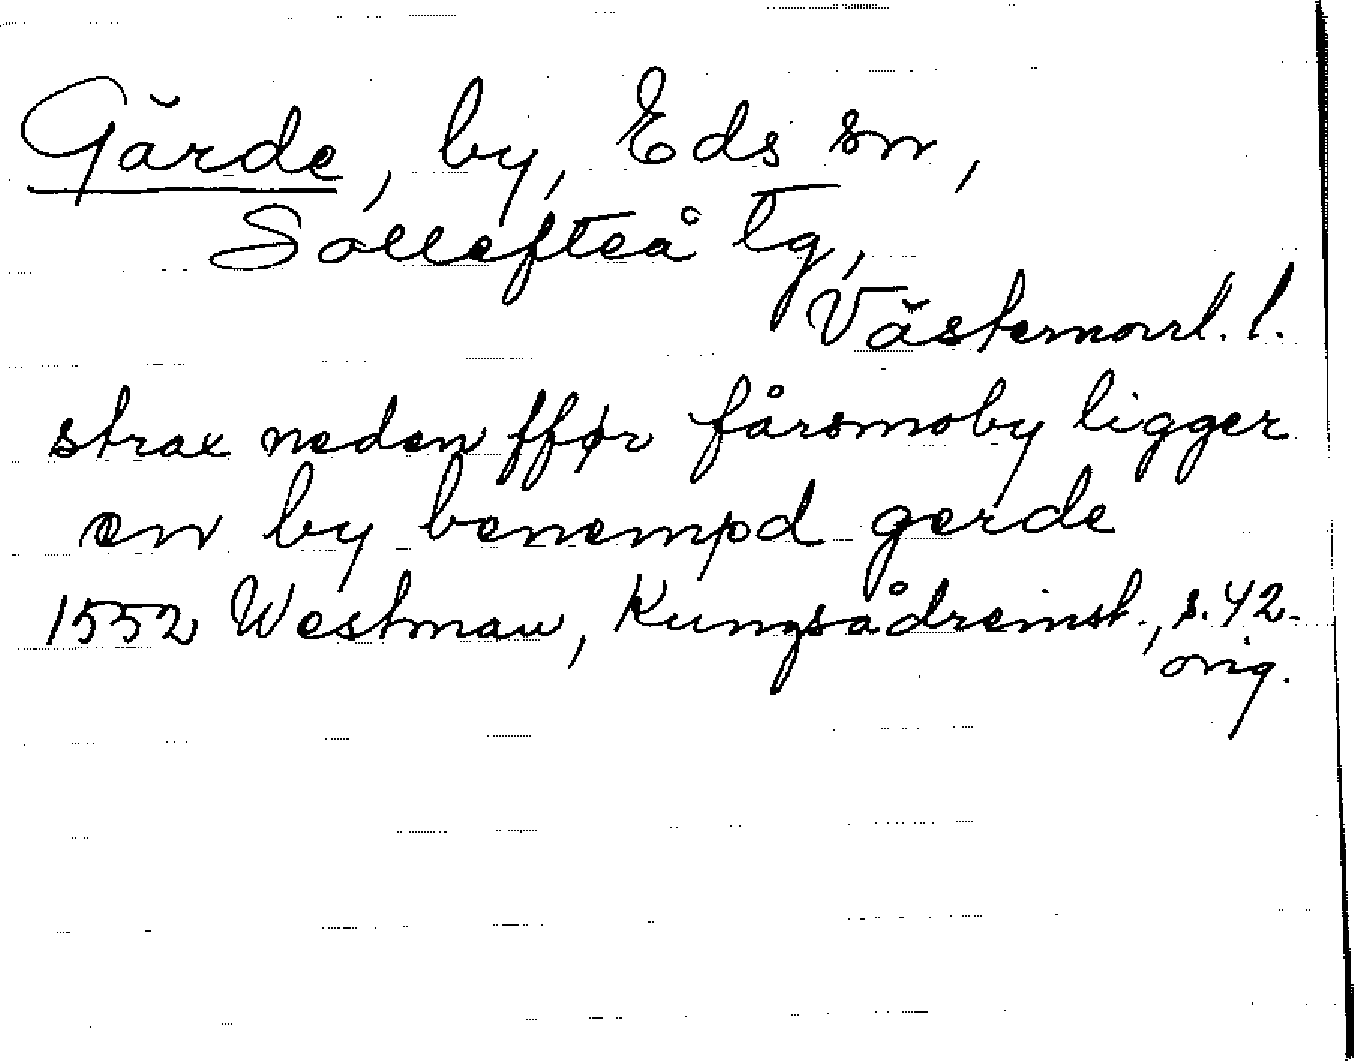 Gärde, by, Eds sn,
Sollefteå tg,
Västernorrl. l.
strax neden fför fårsmoby ligger
en by benempd gerde
1552 Westman, Kungsådreinst., s. 42.
orig.